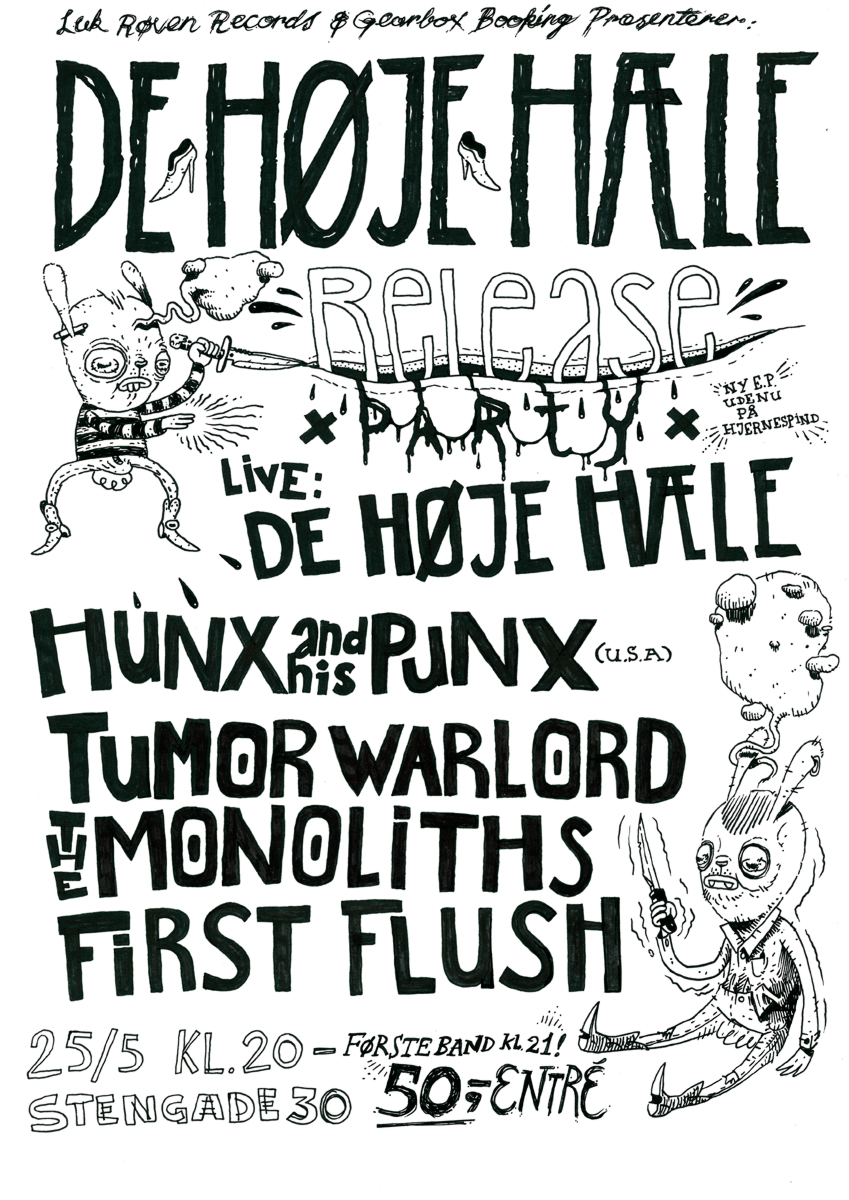 Luk Røven Records & Gearbox Booking Præsenterer:
DE HØJE HÆLE
Release
PARTY
NY E.P.
UDE NU
PÅ
HJERNESPIND
LiVE:
DE HØJE HÆLE
HUNX and his PUNX (U.S.A)
TUMOR WARLORD
THE MONOLiTHS
FiRST FLUSH
25/5 KL.20 – FØRSTE BAND KL.21!
STENGADE 30 50,= ENTRÉ